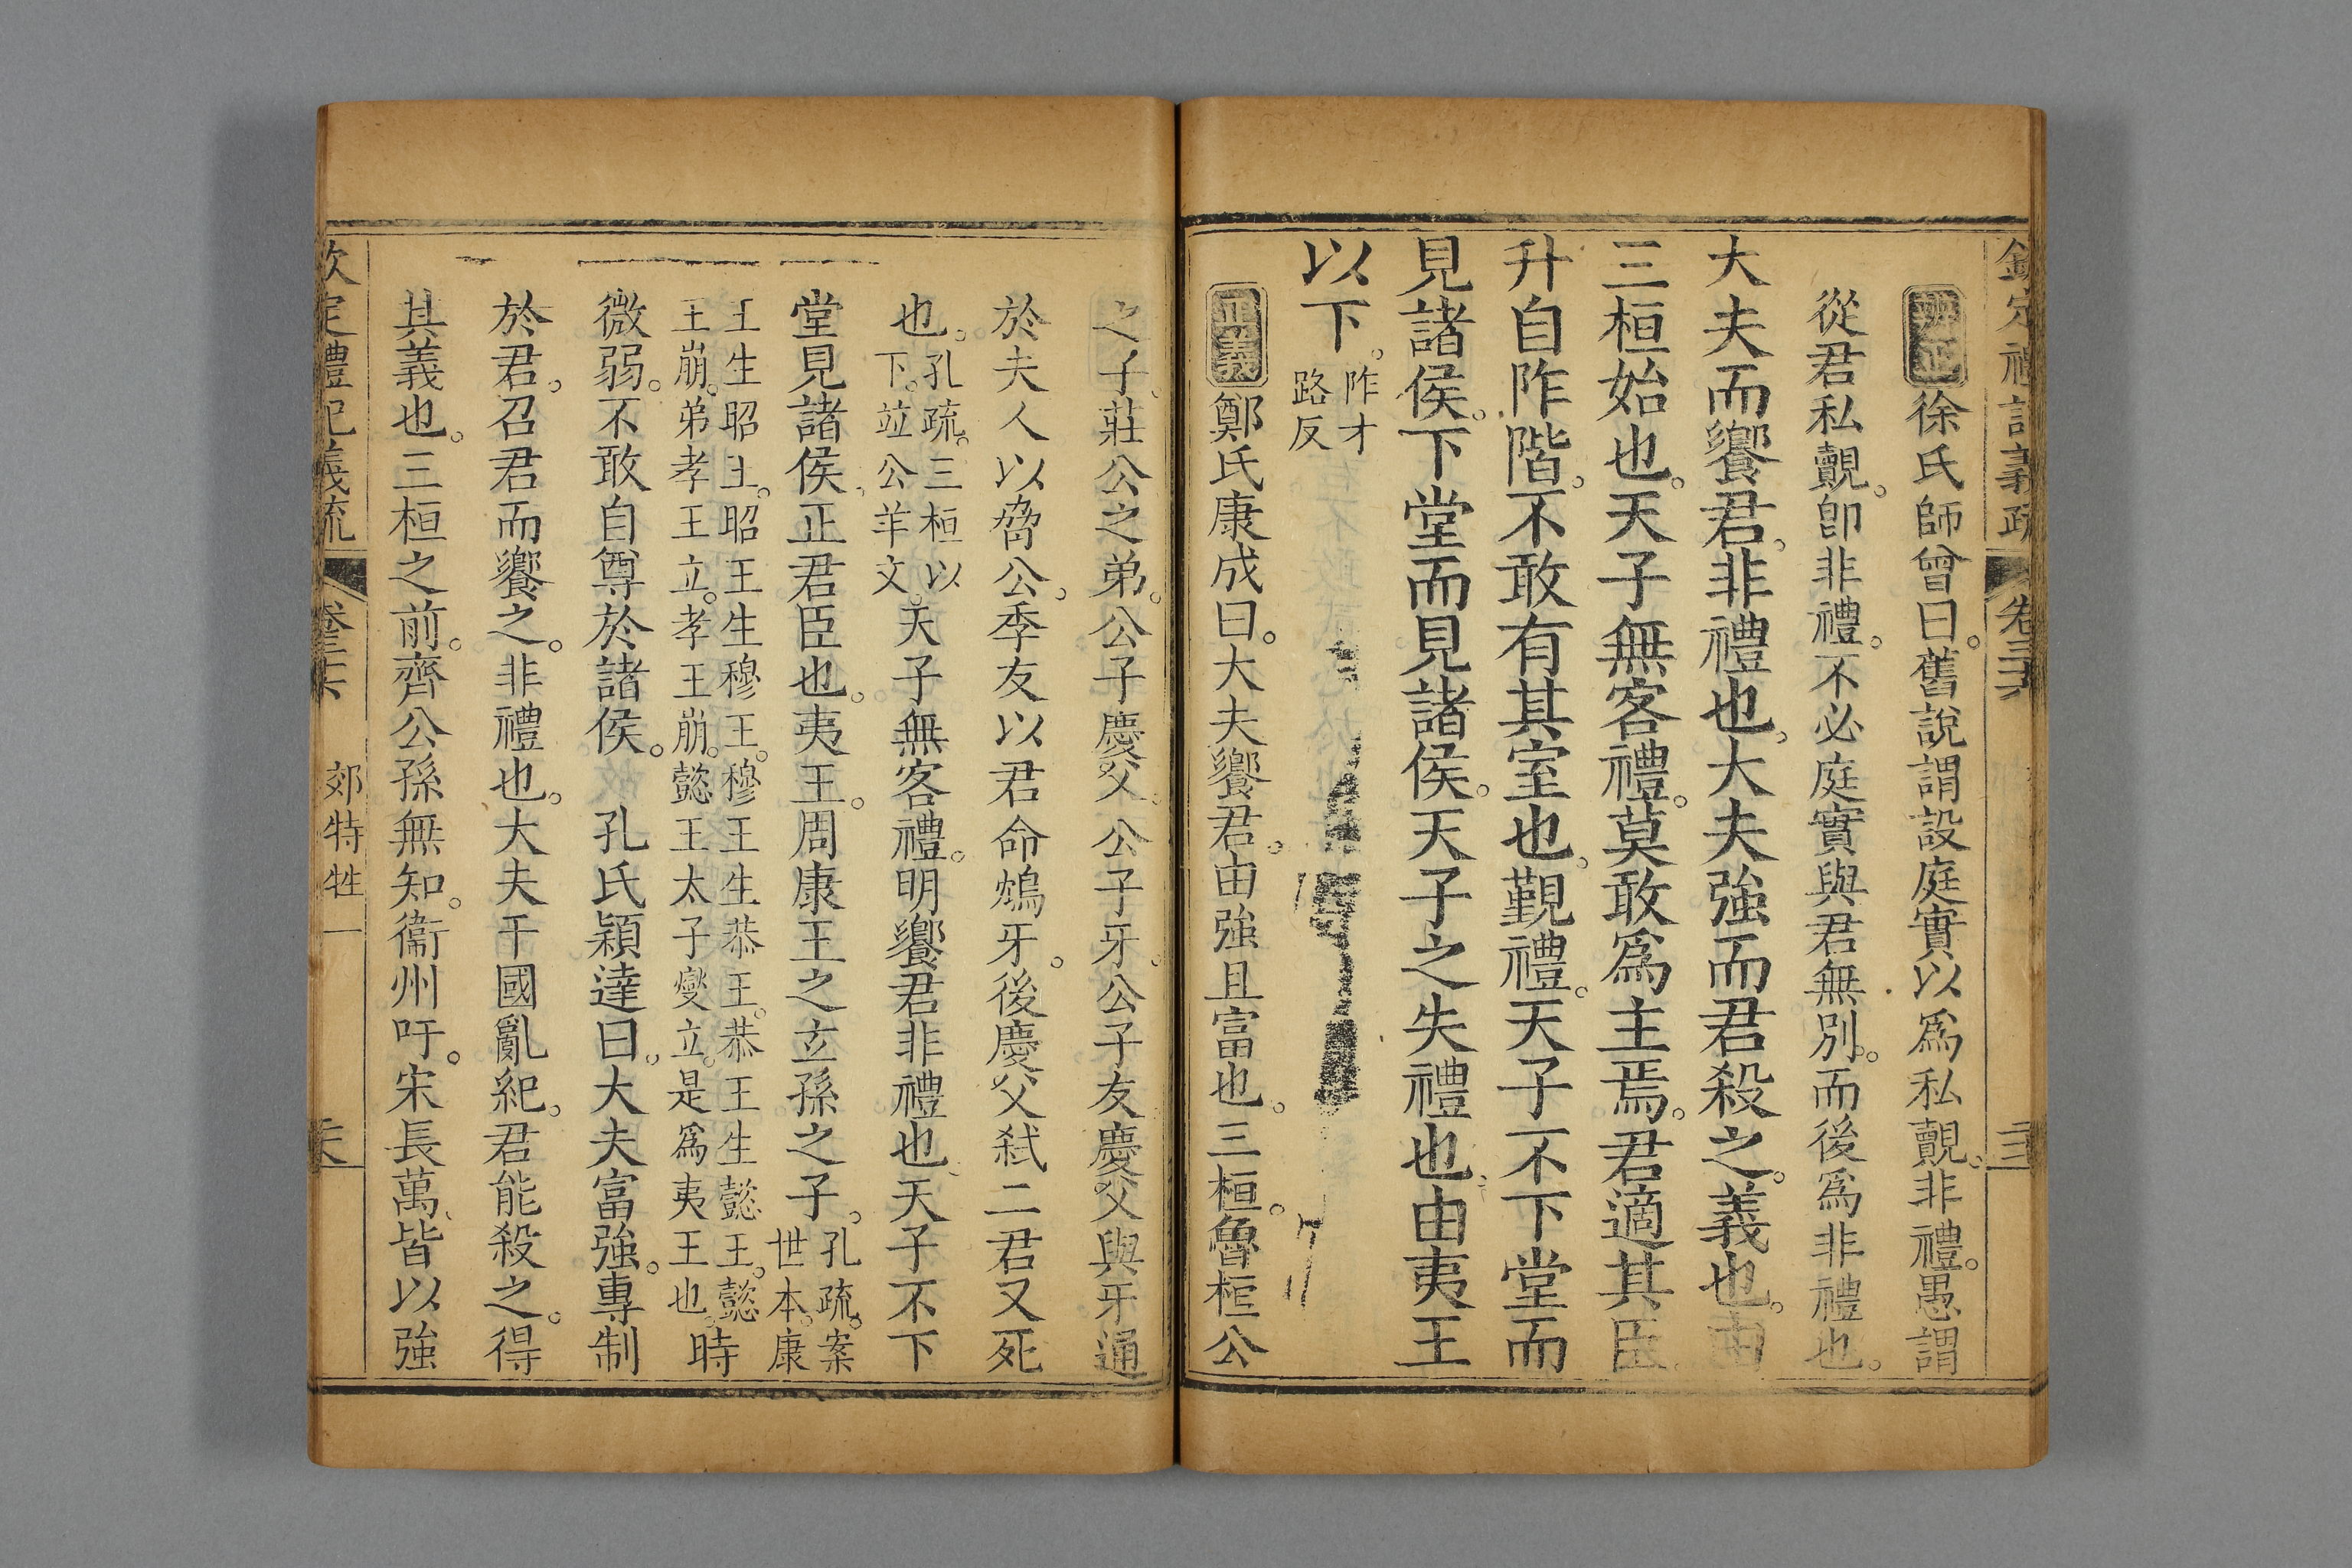 欽定禮記義疏 卷三十六
辨正 徐氏師曾曰。舊說謂設庭實以為私覿。非禮。愚謂
從君私覿。卽非禮。不必庭實與君無別。而後為非禮也。
大夫而饗君。非禮也。大夫強而君殺之。義也。由
三桓始也。天子無客禮。莫敢為主焉。君適其臣。
升自阼階。不敢有其室也。覲禮。天子不下堂而
見諸侯。下堂而見諸侯。天子之失禮也。由夷王
以下。阼才路反
正義 鄭氏康成曰。大夫饗君。由強且富也。三桓。魯桓公
之子。莊公之弟。公子慶父。公子牙。公子友。慶父與牙通
於夫人以脅公。季友以君命鴆牙。後慶父弒二君又死
也。孔疏。三桓以下。竝公羊文。天子無客禮。明饗君非禮也。天子不下
堂見諸侯。正君臣也。夷王。周康王之玄孫之子。孔疏。案世本。康
王生昭王。昭王生穆王。穆王生恭王。恭王生懿王。懿王崩。弟孝王立。孝王崩。懿王太子燮立。是為夷王也。時
微弱。不敢自尊於諸侯。 孔氏穎達曰。大夫富強。專制
於君。召君而饗之。非禮也。大夫干國亂紀。君能殺之。得
其義也。三桓之前。齊公孫無知。衞州吁。宋長萬。皆以強
欽定禮記義疏 卷三十六 郊特牲一